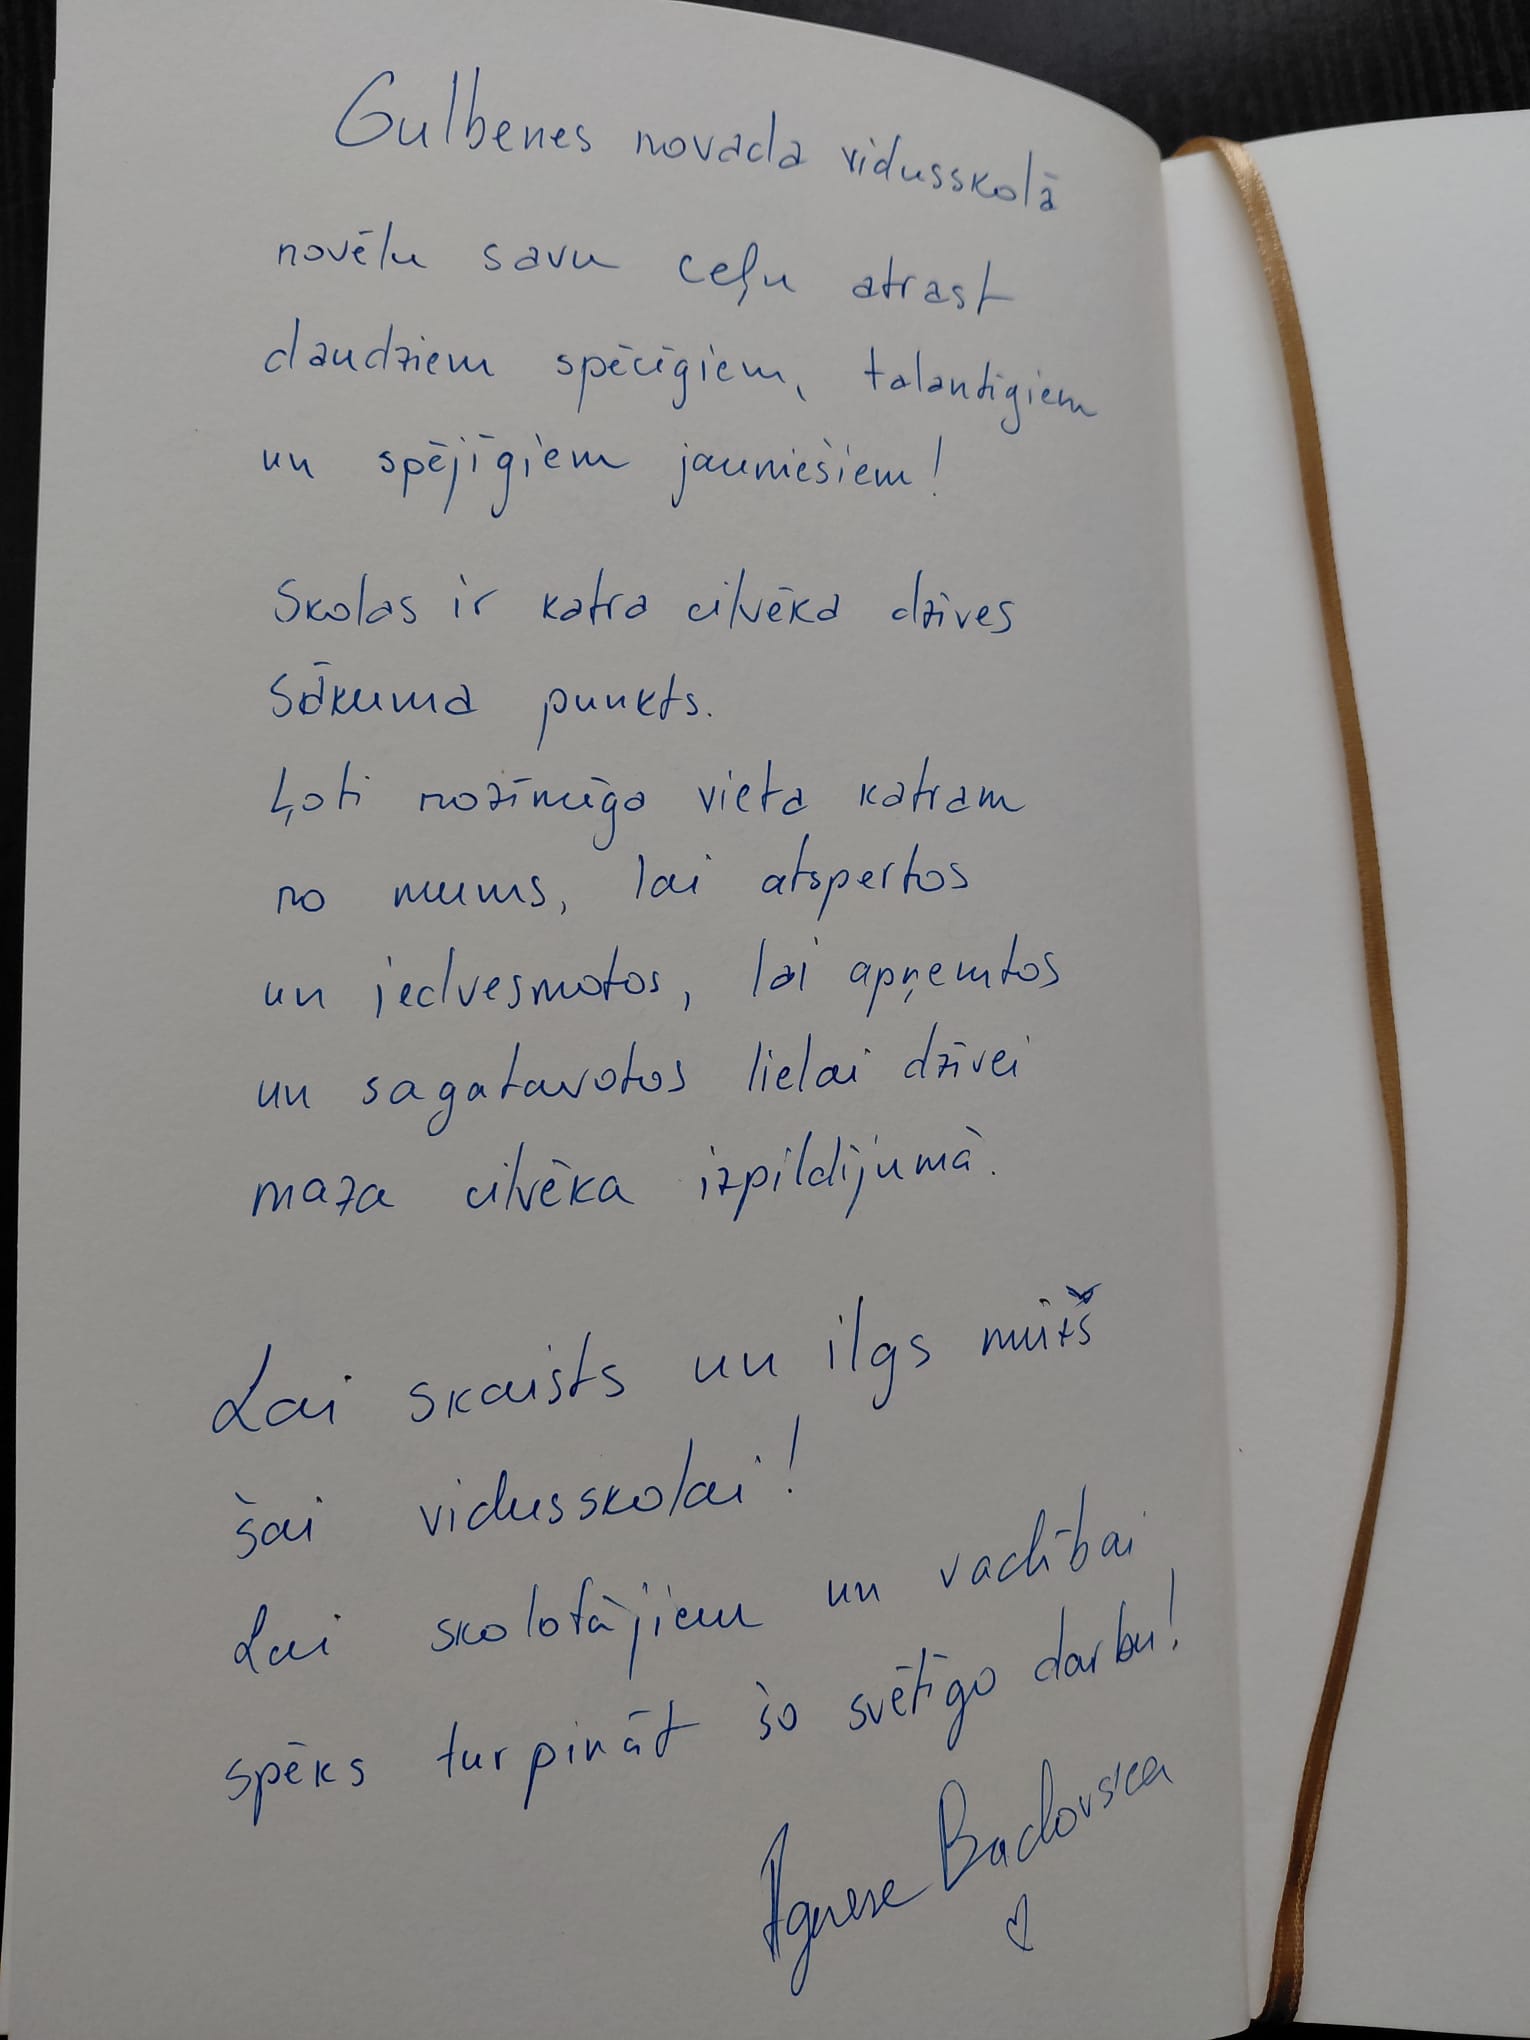 Gulbenes novada vidusskolā
novēlu savu ceļu atrast
daudziem spēcīgiem, talantīgiem
un spējīgiem jauniešiem!
Skolas ir katra cilvēka dzīves
sākuma punkts.
Ļoti nozīmīga vieta katram
no mums, lai atspertos
un iedvesmotos, lai apņemtos
un sagatavotos lielai dzīvei
maza cilvēka izpildījumā.
Lai skaists un ilgs mūžs
šai vidusskolai!
Lai skolotājiem un vadībai
spēks turpināt šo svētīgo darbu!
Agnese Badovska